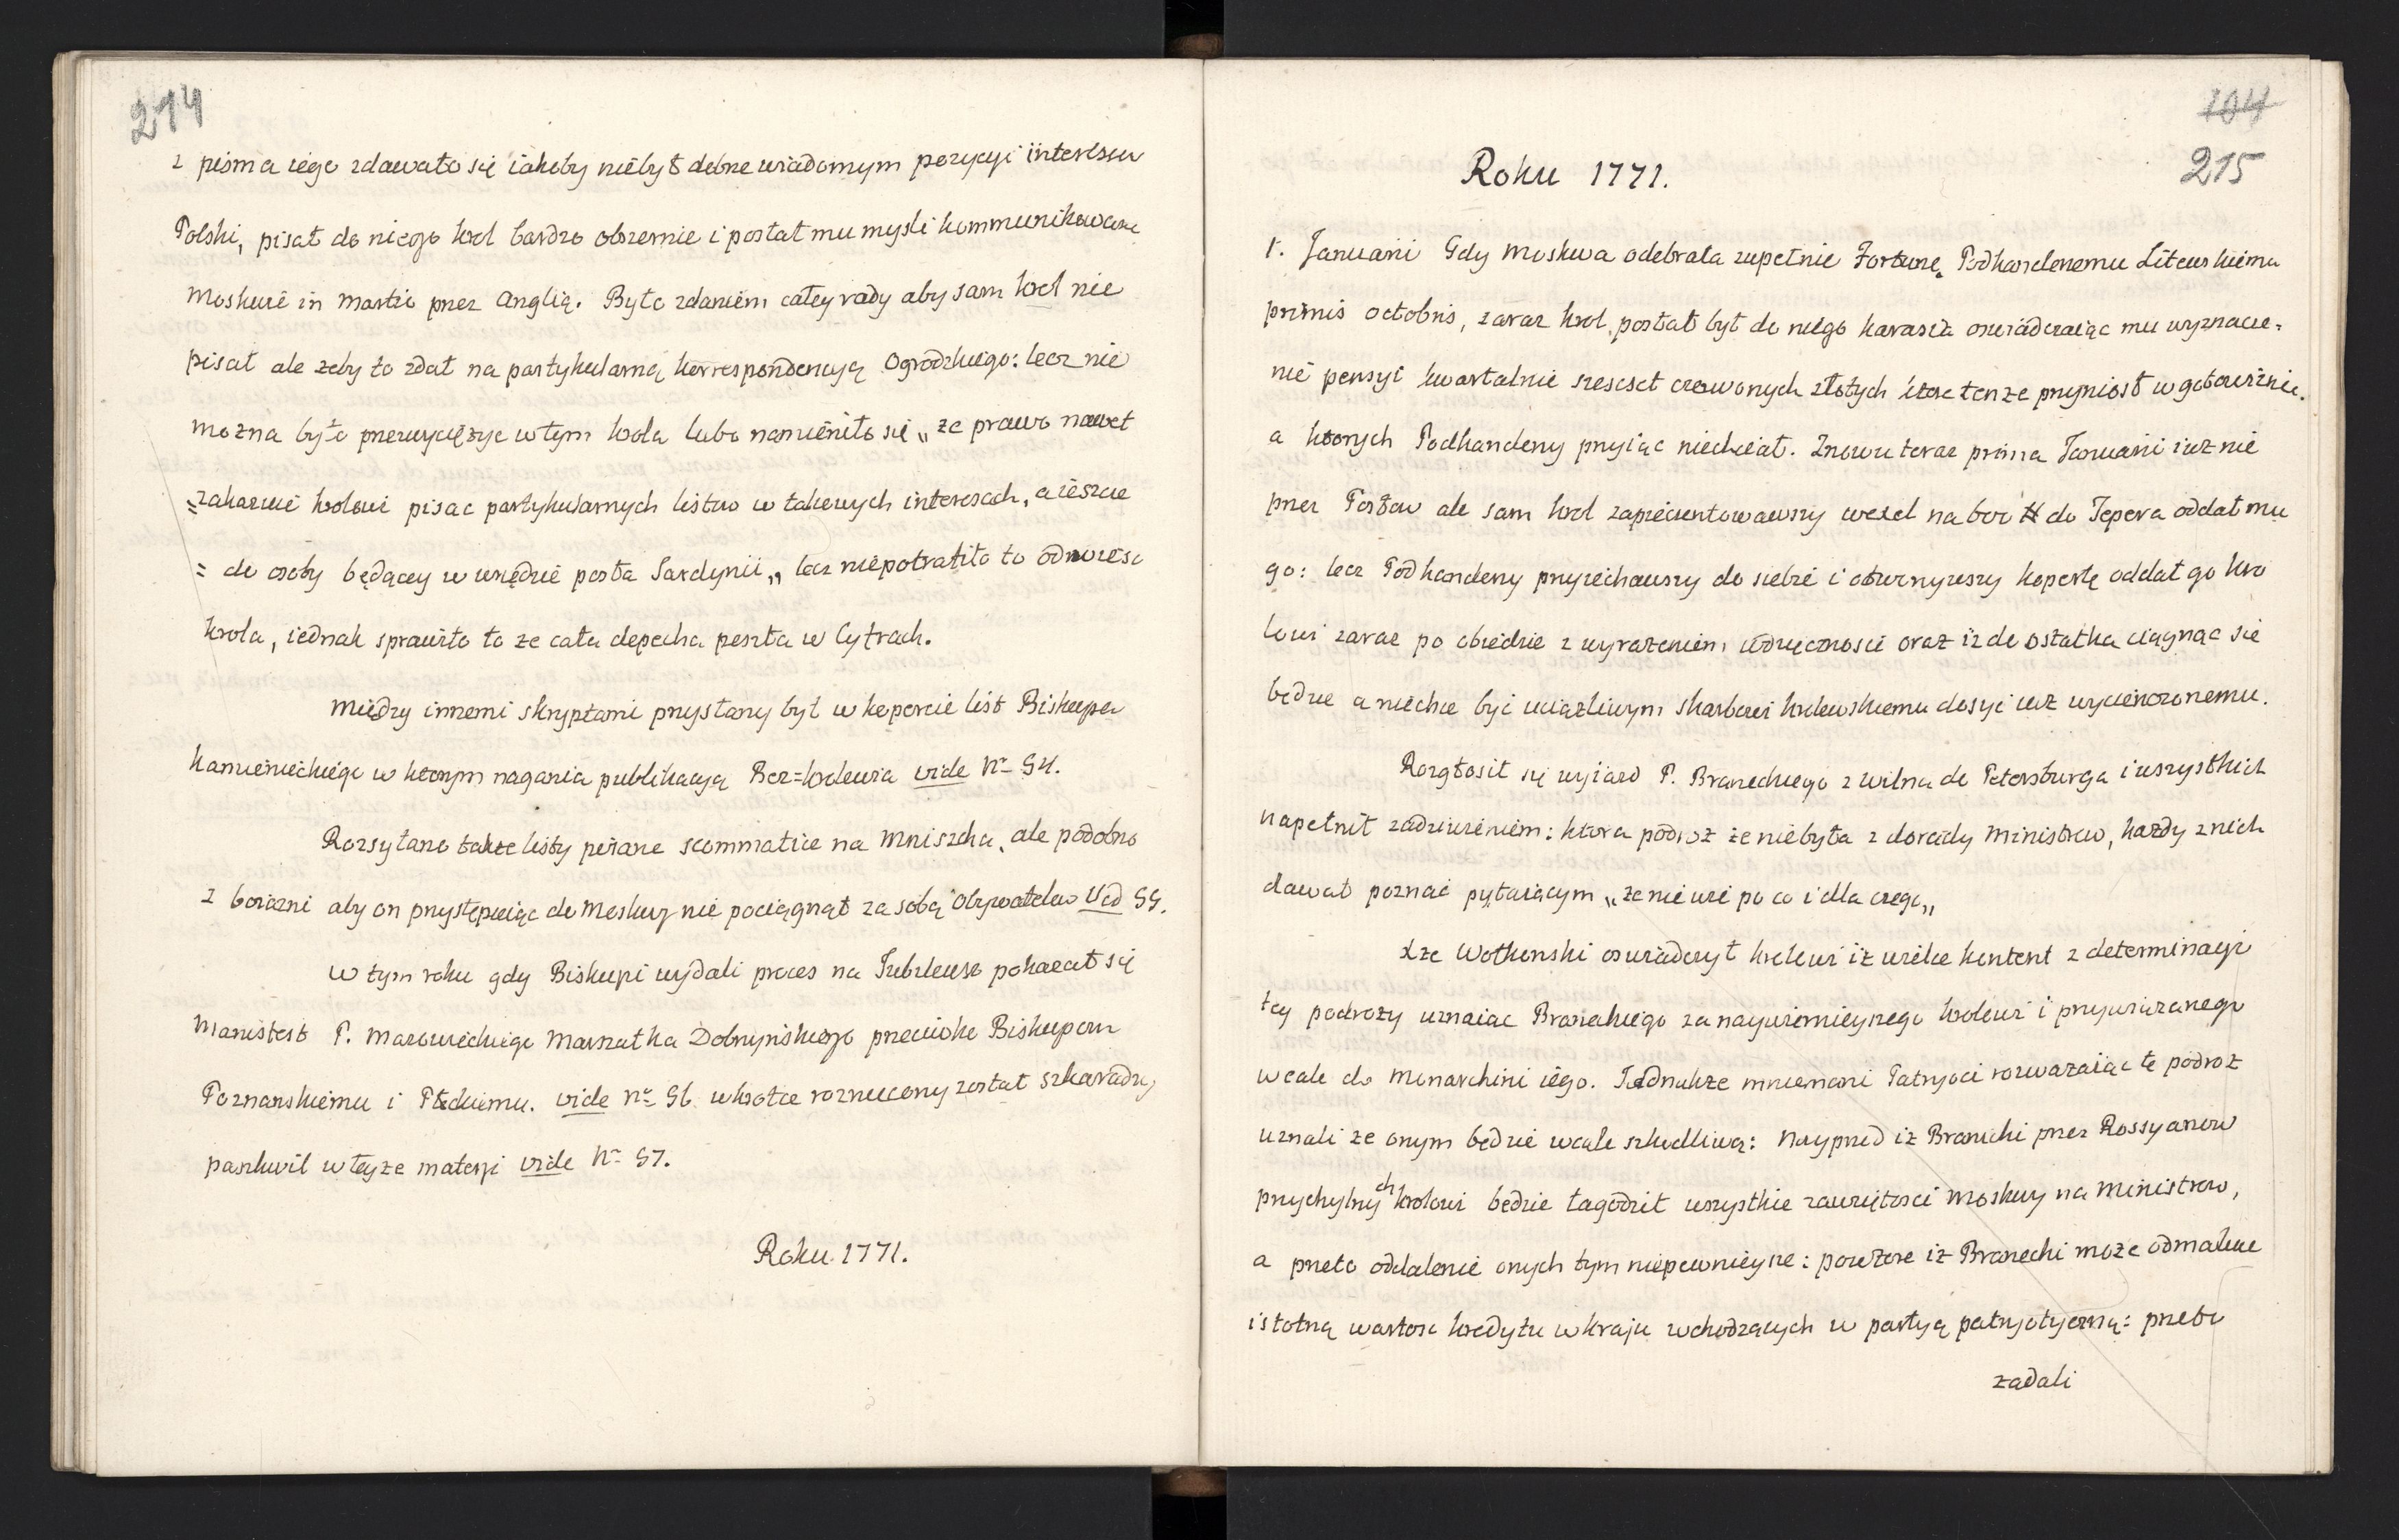 214
z pisma iego zdawało się iakoby niebył dobrze wiadomym pozycyi interessu
Polski, pisał do niego krol bardzo obszernie i posłał mu mysli kommunikowane
Moskwie in Martio przez Anglią. Było zdaniem całey rady aby sam krol nie
pisał ale żeby to zdał na partykularną korrespondencyą Ogrodzkiego: lecz nie
można było przezwyciężyc w tym krola lubo namieniło się „że prawo nawet
„zakazuie krolowi pisac partykularnych listow w takowych interesach, a ieszcze
= do osoby będącey w urzędzie posła Sardynii„ lecz niepotrafiło to odwiesc
krola, iednak sprawiło to że cała depecha poszła w Cyfrach.
Między innemi skryptami przysłany był w kopercie list Biskupa
Kamienieckiego w ktorym nagania publikacyą Bez=krolewia vide Nr 54.
Rozsyłano także listy pisane scommatice na Mniszcha, ale podobno
z boiazni aby on przystępuiąc do Moskwy nie pociągnął za sobą Obywatelow Vid 55.
W tym roku gdy Biskupi wydali proces na Jubileusz pokazał się
Manifest P. Mazowieckiego Marszałka Dobrzynskiego przeciwko Biskupom
Poznanskiemu i Płockiemu. vide Nr 56 wkrotce roznucony został szkaradny
paszkwil w teyże materyi vide Nr 57.
Roku 1771.
104
215
Roku 1771.
1. Januarii Gdy Moskwa odebrała zupełnie Fortunę Podkanclerzemu Litewskiemu
primis octobris, zaraz krol posłał był do niego karasia oswiadczaiąc mu wyznacze=
nie pensyi kwartalnie szescset czerwonych złotych ktore tenże przyniosł w gotowiznie.
a ktorych Podkanclerzy przyiąc niechciał. Znowu teraz prima Januarii iuz nie
przez Posłow ale sam krol zapieczentowawszy wexel na 600 # do Tepera oddał mu
go: lecz Podkanclerzy przyiechawszy do siebie i otworzywszy kopertę oddał go kro
lowi zaraz po obiedzie z wyrazeniem wdzięcznosci oraz iz do ostatka ciągnąc się
będzie a niechce być uciązliwym skarbowi krolewskiemu dosyć iuż wycienczonemu.
Rozgłosił się wyiazd P. Braneckiego z Wilna do Petersburga i wszystkich
napełnił zadziwieniem: ktora podroz że niebyła z dorady Ministrow, każdy z nich
dawał poznać pytaiącym „że nie wie po co i dla czego„
Xże Wołkonski oswiadczył krolowi iż wielce kontent z determinacyi
tey podrozy uznaiac Braneckiego za naywiernieyszego krolowi i przywiązanego
wcale do Monarchini iego. Jednakże mniemani Patryoci rozwazaiąc tę podroz
uznali ze onym będzie wcale szkodliwą: Nayprzod iż Branicki przez Rossyanow
przychylnych krolowi będzie łagodził wszystkie zawziętosci Moskwy na Ministrow,
a przeto oddalenie onych tym niepewnieysze: powtore iż Branecki może odmalowac
istotną wartosc kredytu w kraju wchodzących w partyą patryotyczną: przeto
żądali